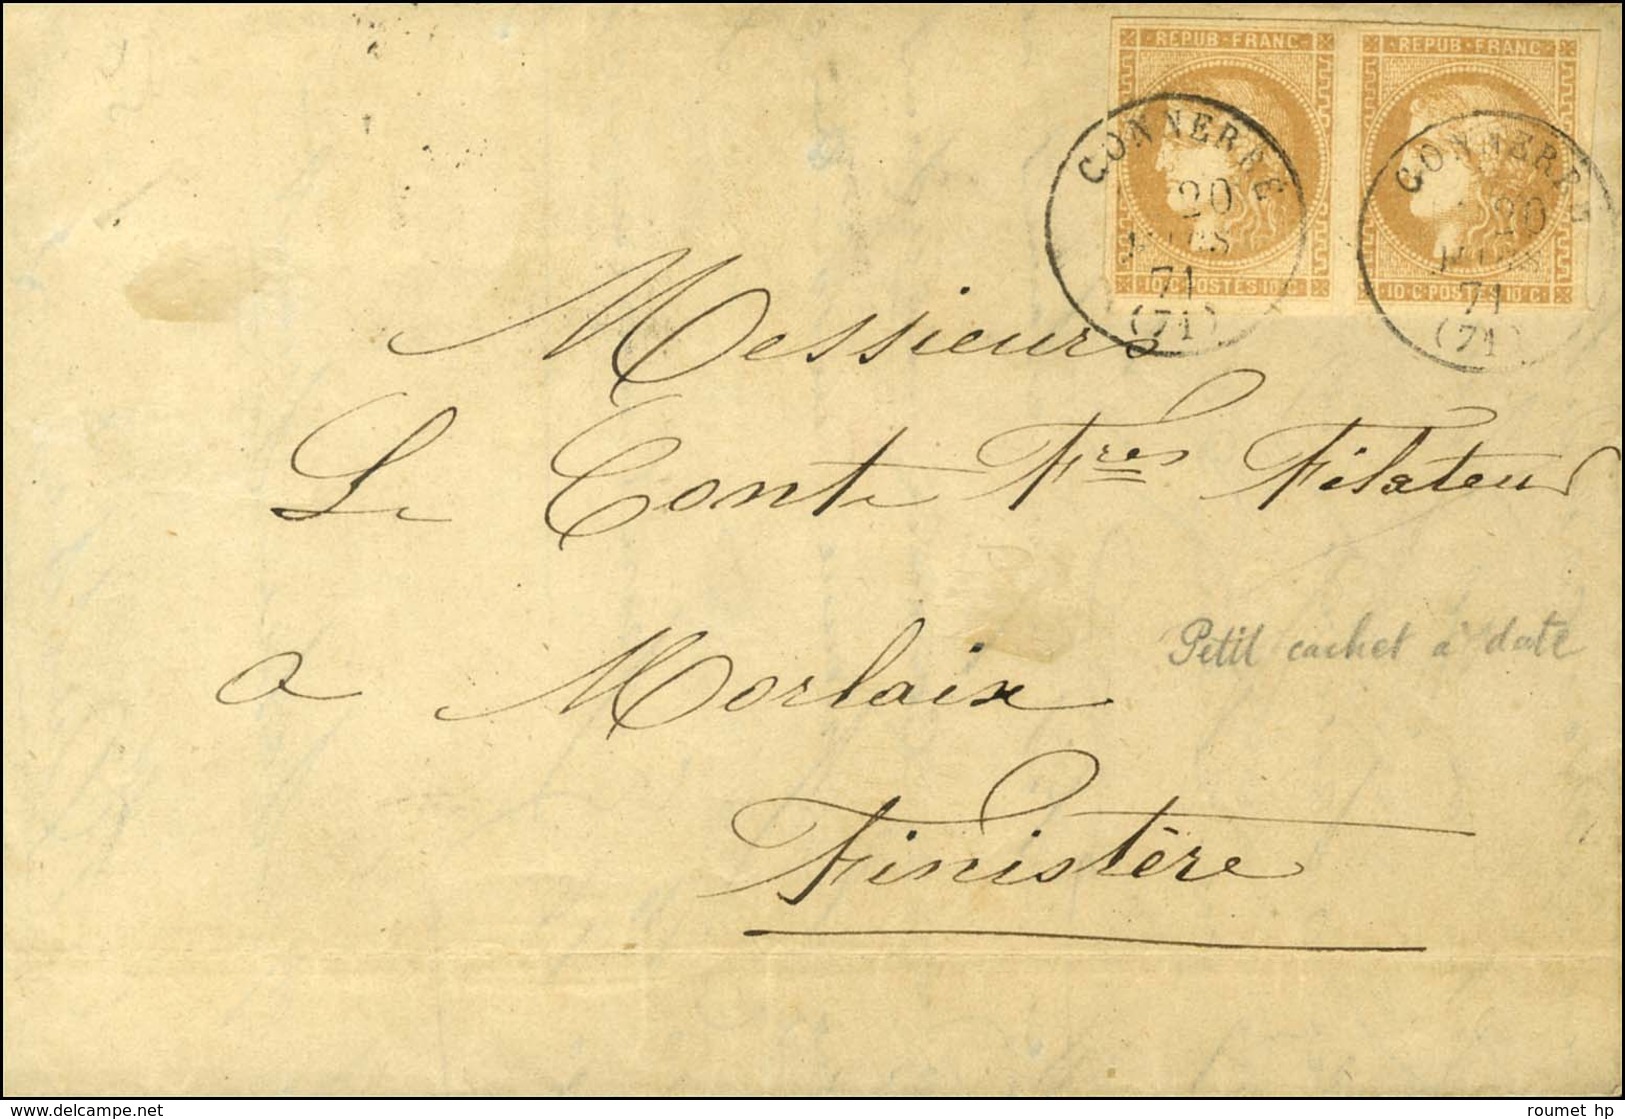 REPUB·FRANC·
REPUB·FRANC·
CONNERRÉ
20
MARS
71
(71)
CONNERRÉ
20
MARS
71
(71)
10·C·POSTES·10·C·
10·C·POSTES·10·C·
Messieurs
Le Cont Fres Filateurs
a Morlaix
Petit cachet à date
Finistère
www.delcampe.net
roumet hp